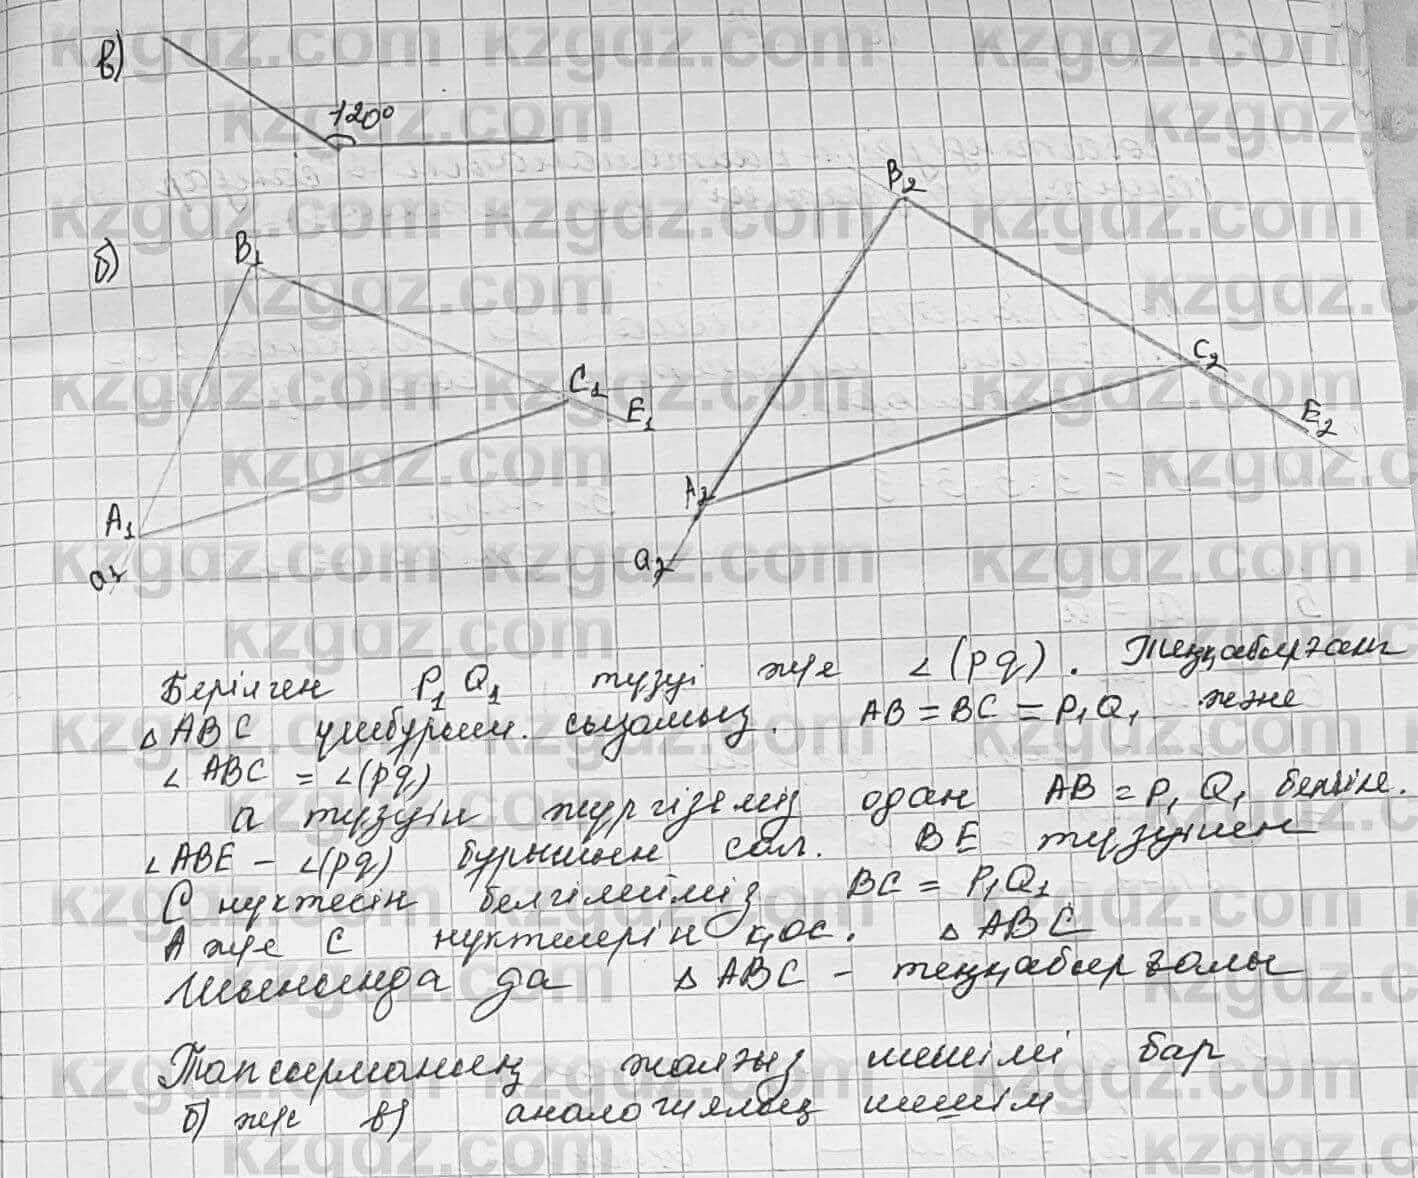 в)
120°
б)
B₁
C₁
E₁
A₁
a₁
B₂
C₂
E₂
A₂
a₂
Берілген P₁Q₁ түзуі және ∠(pq). Теңқабырғалы
△ABC үшбұрыш. сызамыз. AB = BC = P₁Q₁ және
∠ABC = ∠(pq)
a түзуін жүргіземіз одан AB = P₁Q₁
∠ABE – ∠(pq) бұрышпен сал. BE түзуінен
C нүктесін белгілейміз BC = P₁Q₁
A және C нүктелерін қос. △ABC
Шынында да △ABC – теңқабырғалы
Тапсырманың жалғыз шешімі бар
б) және в) аналогиялық шешім
kzgdz.com